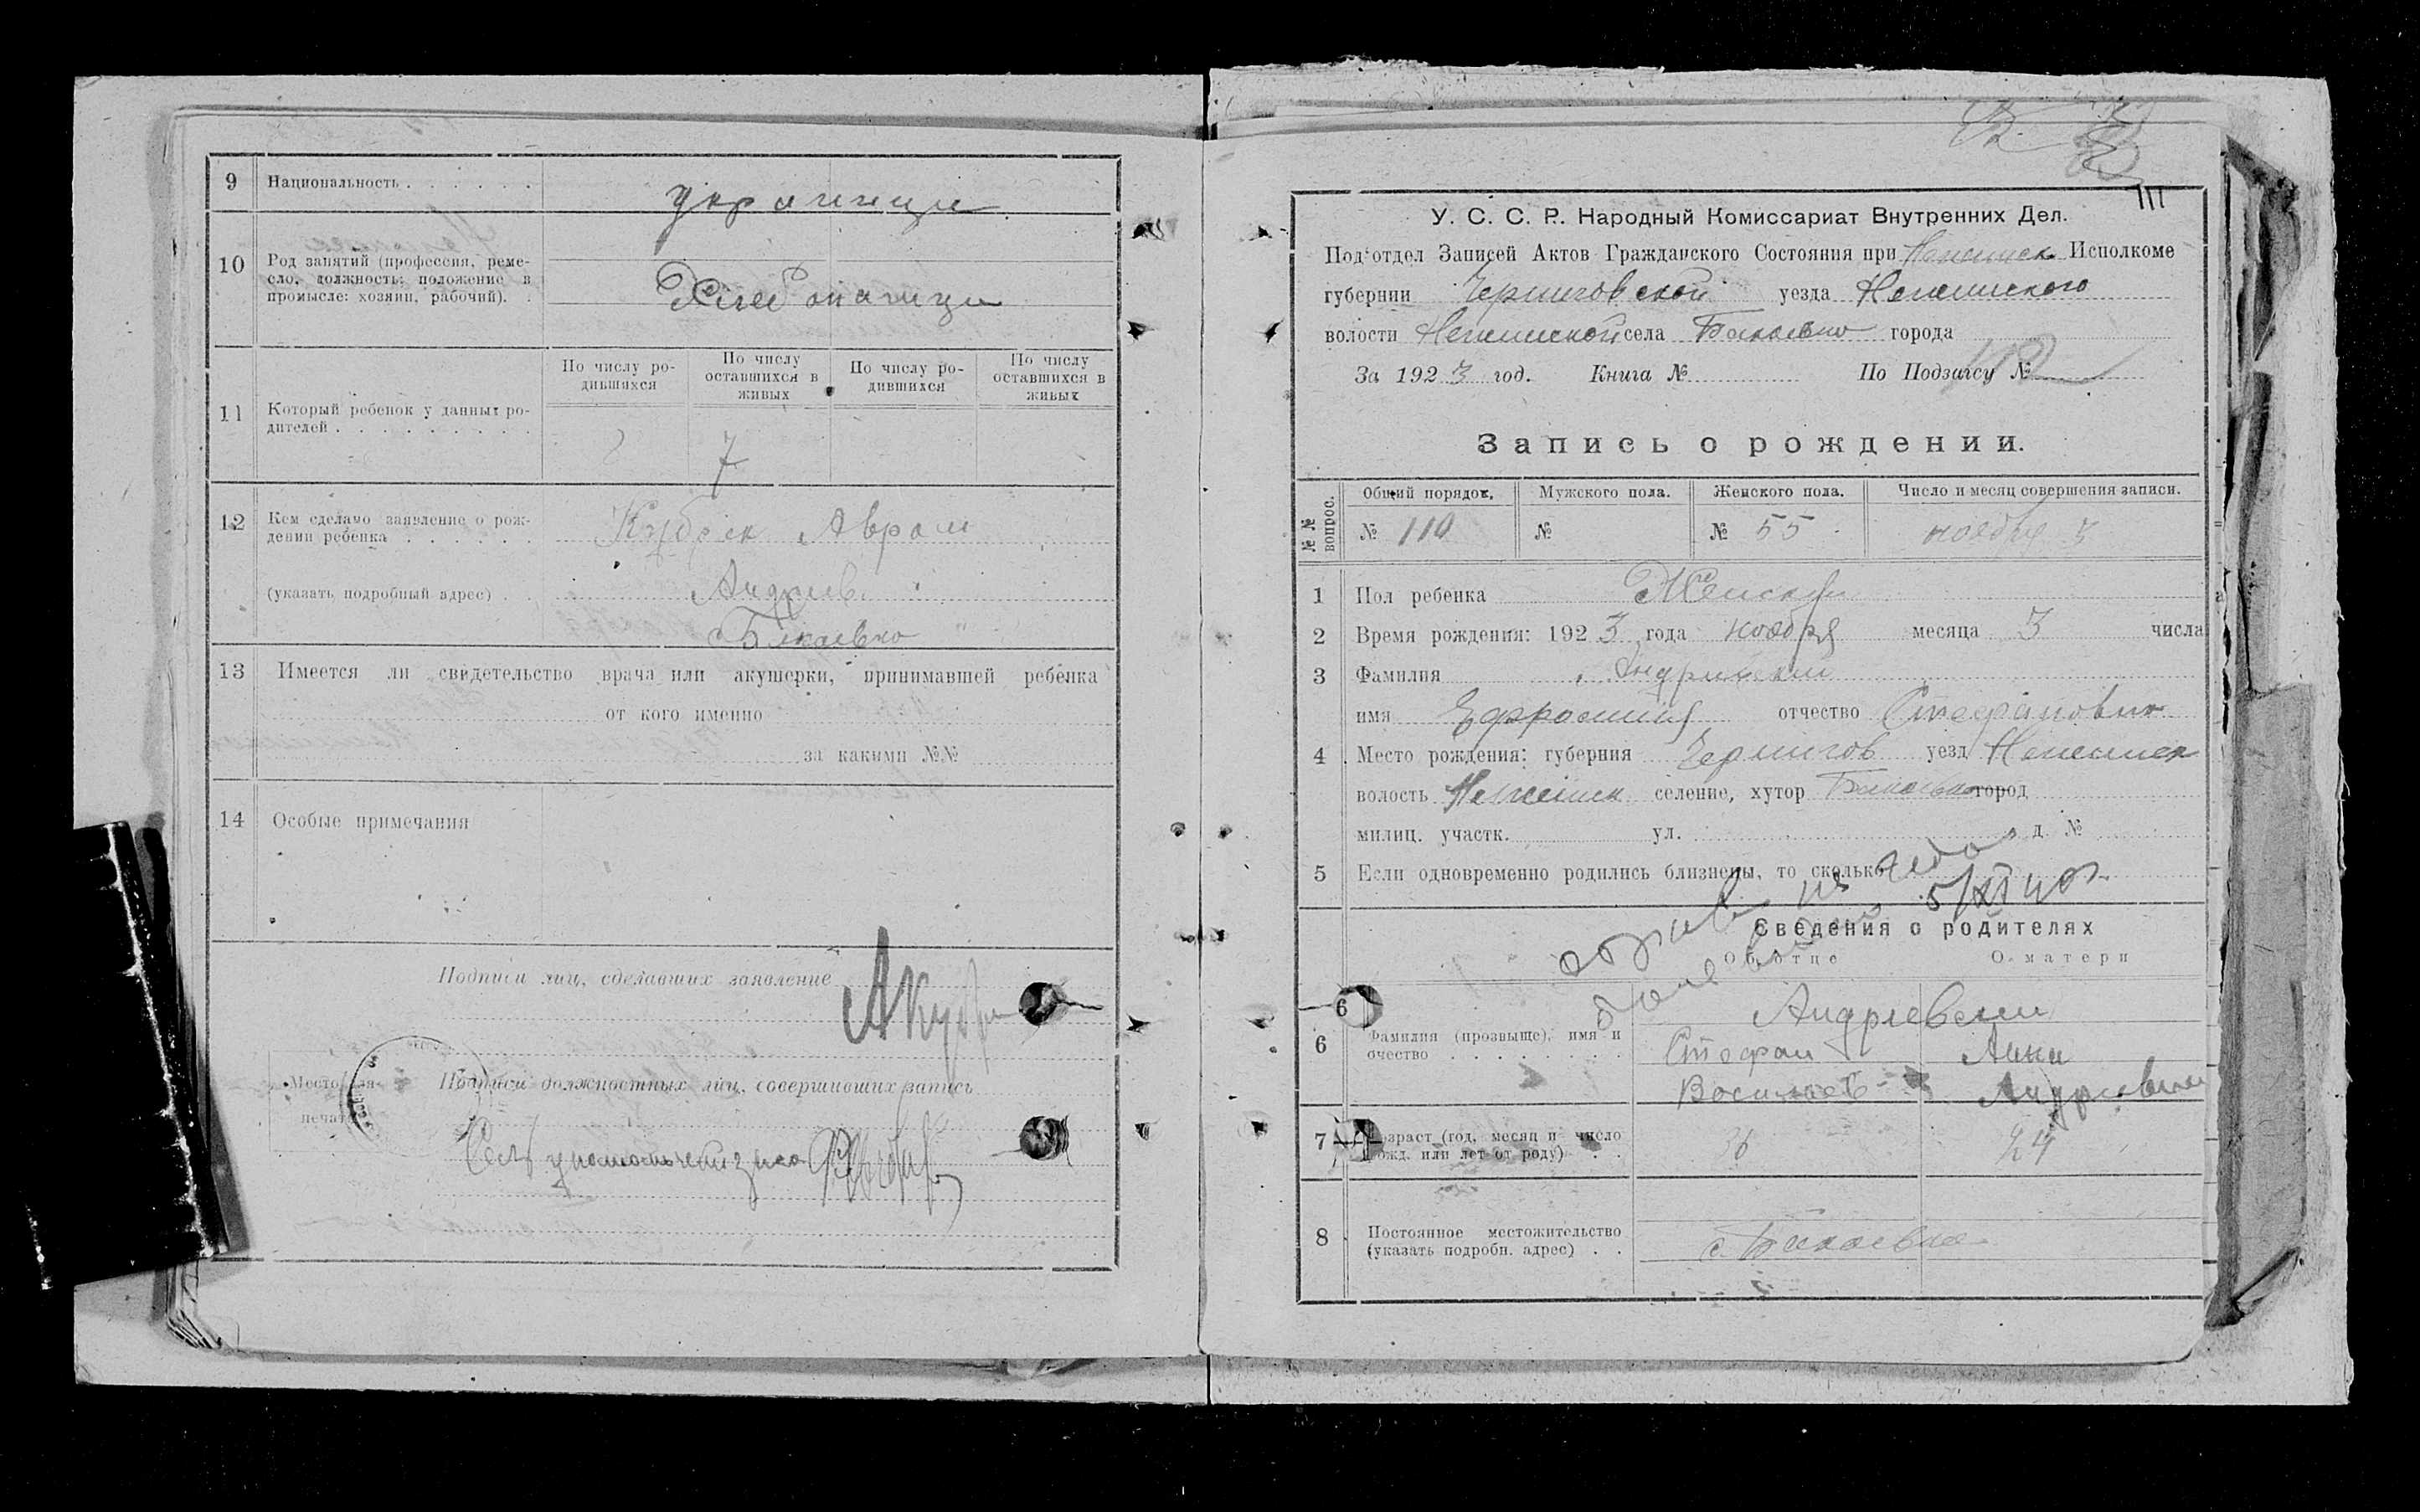 9 Национальность . . . . . .
украинци
10 Род занятий (профессия, реме-
сло, должность: положение в
промысле: хозяин, рабочий). .
Хлебопашци
11 Который ребенок у данных ро-
дителей . . . . . . . . . .
По числу ро-
дившихся
По числу
оставшихся в
живых
По числу ро-
дившихся
По числу
оставшихся в
живых
7
12 Кем сделано заявление о рож-
дении ребенка . . . . . .
Аврам
(указать подробный адрес) . .
Андриев.
13 Имеется ли свидетельство врача или акушерки, принимавшей ребенка
от кого именно
за какими №№
14 Особые примечания
Подписи лиц, сделавших заявление
Место для
печати
Подписи должностных лиц, совершивших запись
У. С. С. Р. Народный Комиссариат Внутренних Дел.
Под‘отдел Записей Актов Гражданского Состояния при Нежинск Исполкоме
губернии Черниговской уезда Нежинского
волости Нежинской села Бакаевка города
За 1923 год. Книга № По Подзагсу №
Запись о рождении.
№№ вопрос.
Общий порядок. Мужского пола. Женского пола. Число и месяц совершения записи.
№ 110 № № 55 ноября 3
1 Пол ребенка Женский
2 Время рождения: 1923 года ноября месяца 3 числа
3 Фамилия
имя Ефросиния отчество Стефановна
4 Место рождения: губерния Чернигов уезд Нежинск
волость Нежинск селение, хутор Бакаевка город
милиц. участк. ул. д. №
5 Если одновременно родились близнецы, то сколько
5/XI 40г.
Сведения о родителях
Об отце О матери
6
6 Фамилия (прозвище), имя и
очество . . . . . . . .
Андриевски
Стефан Анна
Васильев Андриевна
7 Возраст (год, месяц и число
рожд. или лет от роду) . .
36 24
8 Постоянное местожительство
(указать подробн. адрес) . .
с. Бакаевка